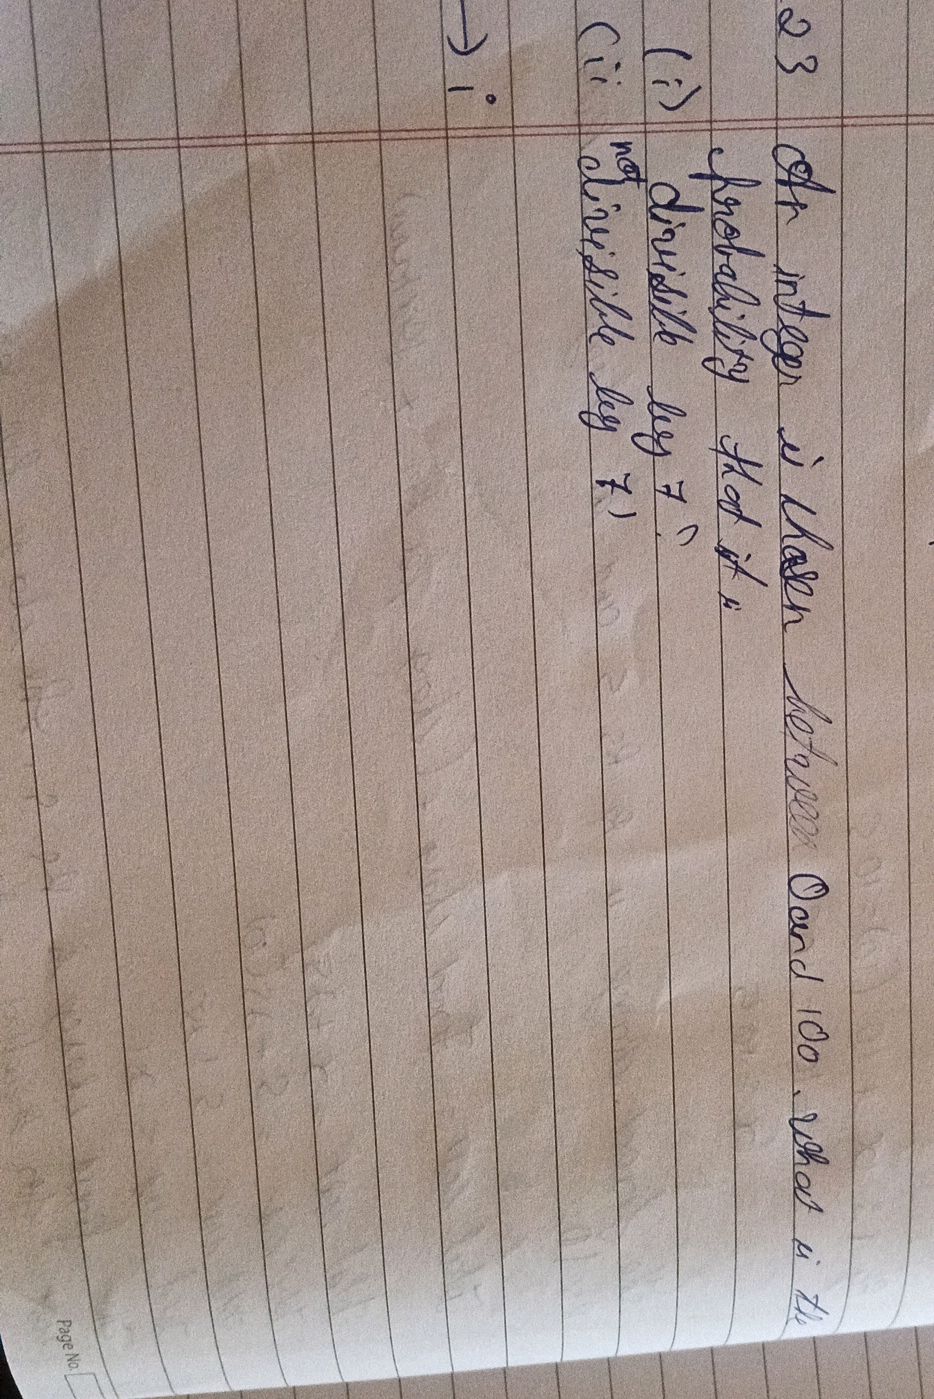 23 An integer is chosen between 0 and 100. What is the
probability that it is
(i) divisible by 7?
(ii not divisible by 7?
→ i
Page No.